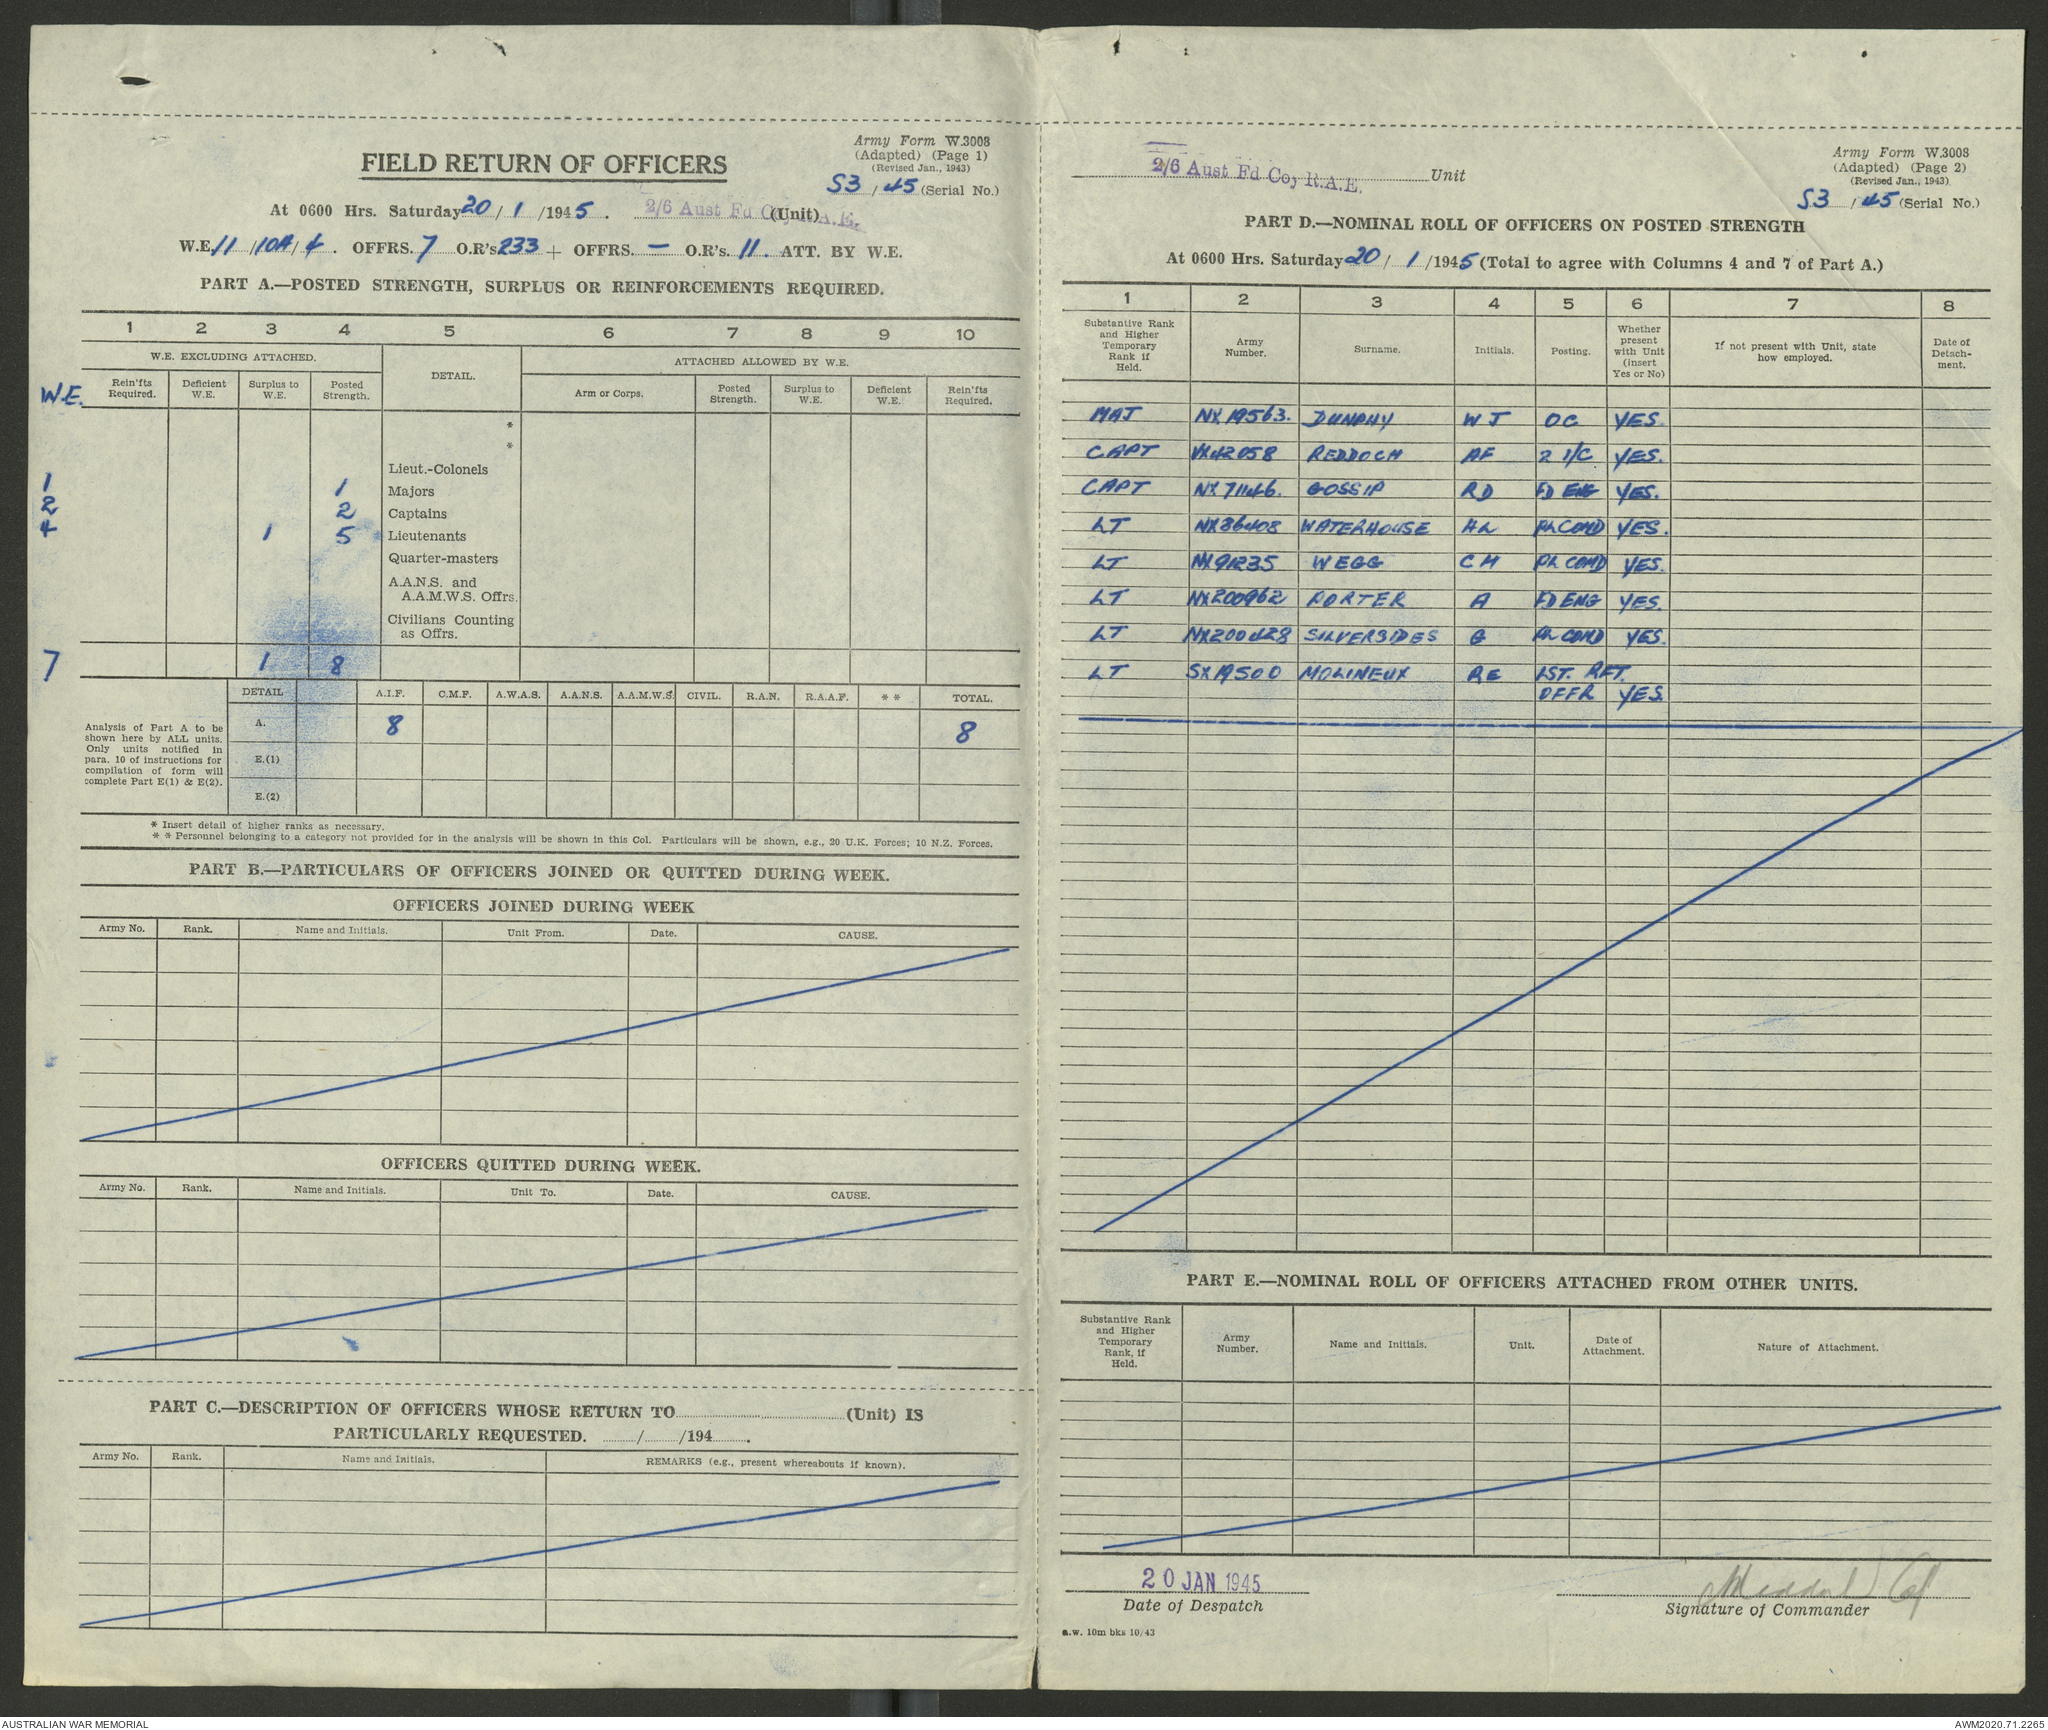 Army Form W.3008
(Adapted) (Page 1)
(Revised Jan., 1943)
S3 / 45 (Serial No.)
FIELD RETURN OF OFFICERS
At 0600 Hrs. Saturday 20 / 1 /1945. 2/6 Aust Fd Coy R.A.E. (Unit)
W.E. 11 / 10A / 4. OFFRS. 7 O.R's 233 + OFFRS. — O.R's. 11. ATT. BY W.E.
PART A.—POSTED STRENGTH, SURPLUS OR REINFORCEMENTS REQUIRED.
1 2 3 4 5 6 7 8 9 10
W.E. EXCLUDING ATTACHED. DETAIL. ATTACHED ALLOWED BY W.E.
W.E. Rein'fts Required. Deficient W.E. Surplus to W.E. Posted Strength. Arm or Corps. Posted Strength. Surplus to W.E. Deficient W.E. Rein'fts Required.
*
*
Lieut.-Colonels
1 1 Majors
2 2 Captains
4 1 5 Lieutenants
Quarter-masters
A.A.N.S. and
A.A.M.W.S. Offrs.
Civilians Counting
as Offrs.
7 1 8
Analysis of Part A to be
shown here by ALL units.
Only units notified in
para. 10 of instructions for
compilation of form will
complete Part E(1) & E(2).
DETAIL A.I.F. C.M.F. A.W.A.S. A.A.N.S. A.A.M.W.S. CIVIL. R.A.N. R.A.A.F. * * TOTAL.
A. 8 8
E.(1)
E.(2)
* Insert detail of higher ranks as necessary.
* * Personnel belonging to a category not provided for in the analysis will be shown in this Col. Particulars will be shown, e.g., 20 U.K. Forces; 10 N.Z. Forces.
PART B.—PARTICULARS OF OFFICERS JOINED OR QUITTED DURING WEEK.
OFFICERS JOINED DURING WEEK
Army No. Rank. Name and Initials. Unit From. Date. CAUSE.
OFFICERS QUITTED DURING WEEK.
Army No. Rank. Name and Initials. Unit To. Date. CAUSE.
PART C.—DESCRIPTION OF OFFICERS WHOSE RETURN TO (Unit) IS
PARTICULARLY REQUESTED. / /194 .
Army No. Rank. Name and Initials. REMARKS (e.g., present whereabouts if known).
2/6 Aust Fd Coy R.A.E. Unit
Army Form W.3008
(Adapted) (Page 2)
(Revised Jan., 1943)
S3 / 45 (Serial No.)
PART D.—NOMINAL ROLL OF OFFICERS ON POSTED STRENGTH
At 0600 Hrs. Saturday 20 / 1 /1945 (Total to agree with Columns 4 and 7 of Part A.)
1 2 3 4 5 6 7 8
Substantive Rank and Higher Temporary Rank if Held. Army Number. Surname. Initials. Posting. Whether present with Unit (insert Yes or No) If not present with Unit, state how employed. Date of Detach-ment.
MAJ NX19563. DUNPHY W J OC YES.
CAPT VX42058 REDDOCH AF 2 I/C YES.
CAPT NX71146. GOSSIP RD FD ENG YES.
LT NX86408 WATERHOUSE HL PL COMD YES.
LT NX91235 WEGG C H PL COMD YES.
LT NX200962 PORTER A FD ENG YES.
LT NX200428 SILVERSIDES G PL COMD YES.
LT SX19500 MOLINEUX RE 1ST. RFT.
OFFR YES.
PART E.—NOMINAL ROLL OF OFFICERS ATTACHED FROM OTHER UNITS.
Substantive Rank and Higher Temporary Rank, if Held. Army Number. Name and Initials. Unit. Date of Attachment. Nature of Attachment.
20 JAN 1945
Date of Despatch
Signature of Commander
a.w. 10m bks 10/43
AUSTRALIAN WAR MEMORIAL
AWM2020.71.2265